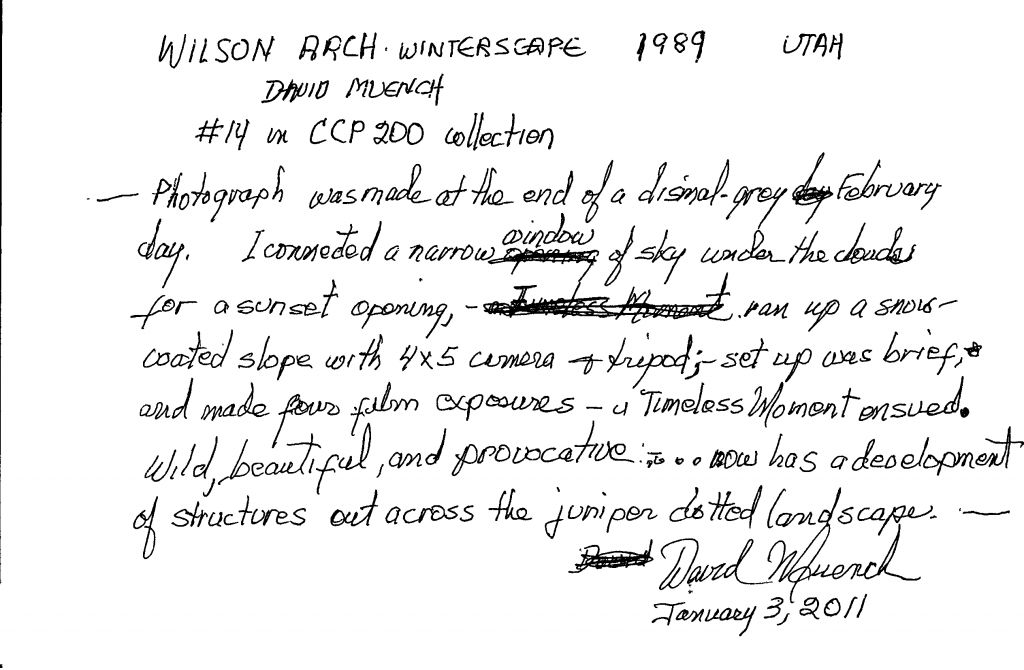 WILSON ARCH · WINTERSCAPE 1989 UTAH
DAVID MUENCH
#14 in CCP 200 collection
— Photograph was made at the end of a dismal-grey day February
window
day. I connected a narrow opening of sky under the clouds
for a sunset opening, – a Timeless Moment ran up a snow-
coated slope with 4x5 camera + tripod; – set up was brief,
and made four film exposures – a Timeless Moment ensued.
Wild, beautiful, and provocative ... now has a development
of structures out across the juniper dotted landscape. —
David David Muench
January 3, 2011